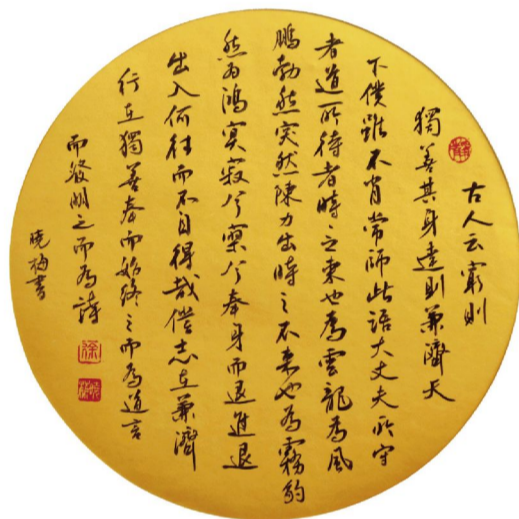 古人云窮則
獨善其身達則兼濟天
下僕雖不肖常師此語大丈夫所守
者道所待者時之來也為雲龍為風
鵬勃然突然陳力出時之不來也為霧豹
然為鴻冥寂兮寥兮奉身而退進退
出入何往而不自得哉僕志在兼濟
行在獨善奉而始終之而為道言
而發明之而為詩
曉梅書
徐